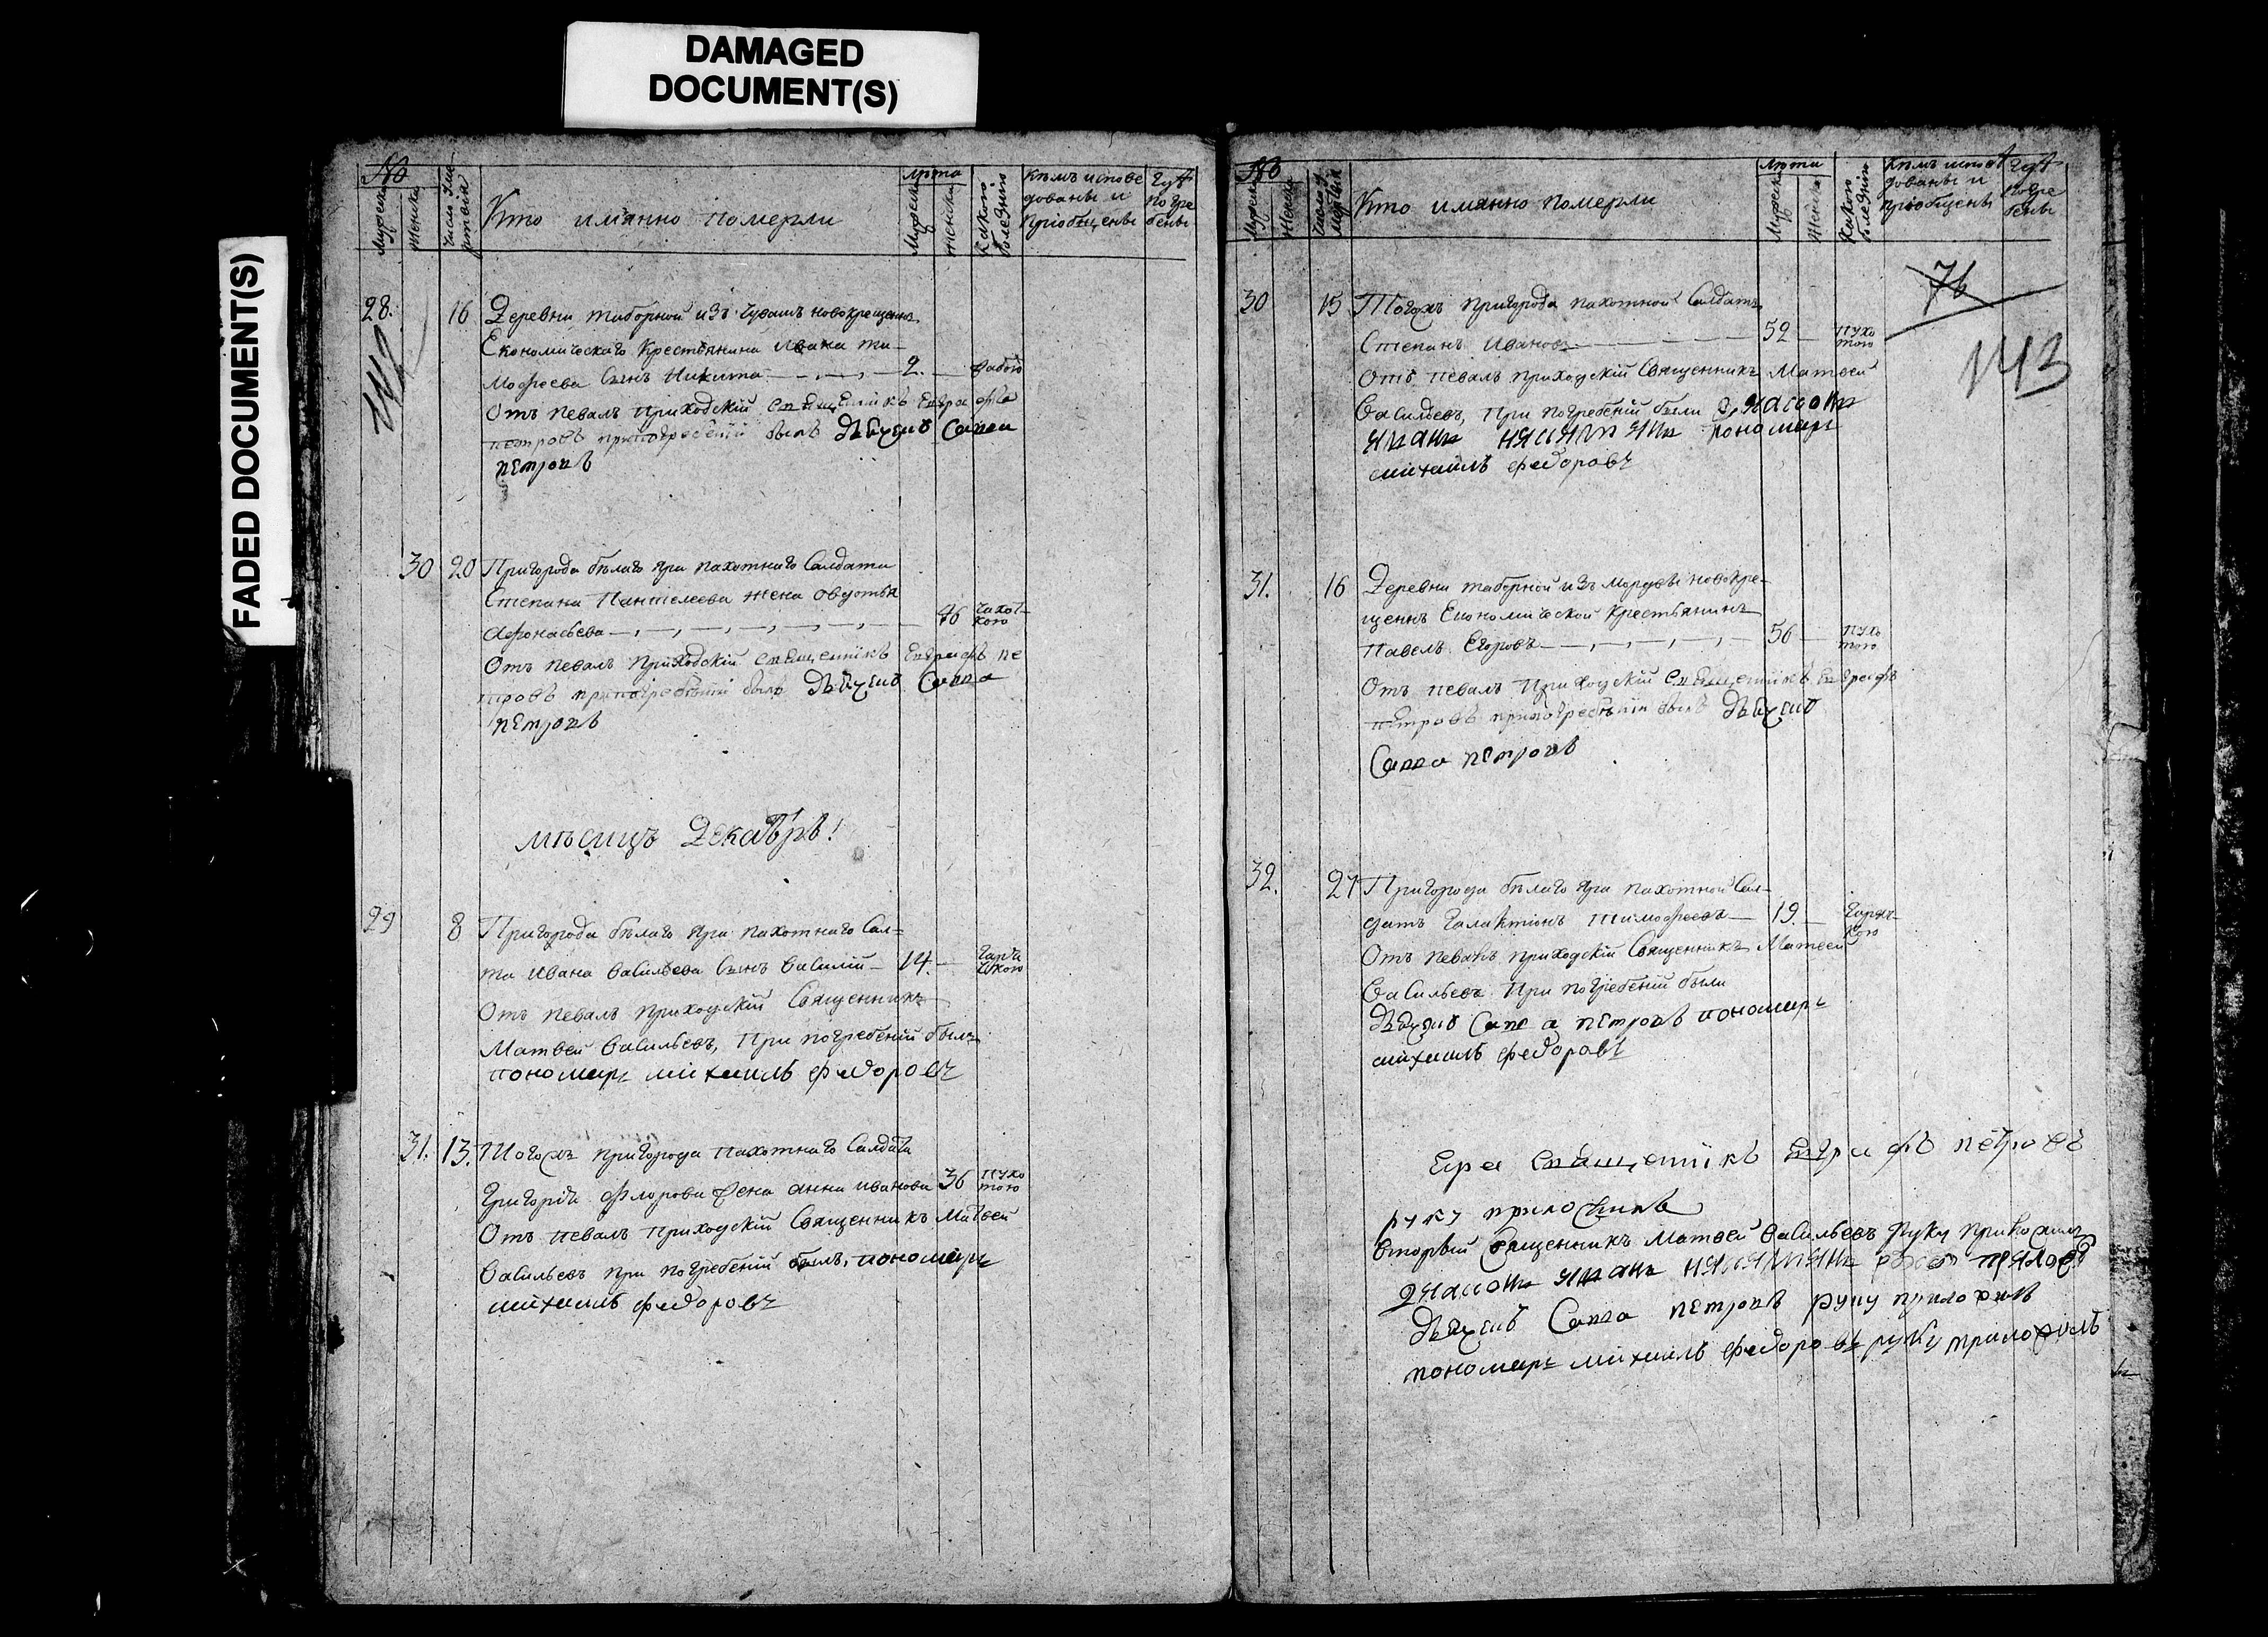 DAMAGED
DOCUMENT(S)
FADED DOCUMENT(S)
№
Мужеска
Женска
Число умертвія
Кто имянно померли
лѣта
Мужеска
Женска
Какою болезнію
Кѣмъ испове
дованы и
пріобщены
Гдѣ
погре
бены
28.
16
Деревни таборной изъ Чувашъ новокрещенъ
Економическаго Крестьянина Ивана ти-
мофеева сынъ Никита 2.
Отъ певалъ приходскій священникъ Евграфъ
петровъ припогребеніи былъ дьячекъ Савва
петровъ
30 20 Пригорода бѣлаго Яра пахотнаго Салдата
Степана Пантелеева жена Овдотья
Афонасьева 46 чахот-
кою
Отъ певалъ приходскій священникъ Евграфъ пе
тровъ припогребеніи былъ дьячекъ Савва
петровъ
мѣсяцъ Декабрь!
29 8 Пригорода бѣлаго Яра пахотнаго Сал=
та Ивана Васильева сынъ Василій 14. горя
чкою
Отъ певалъ приходскій Священникъ
Матвей Васильевъ, При погребеніи былъ
пономарь михаилъ федоровъ
31. 13. Тогожъ пригорода пахотнаго Салдата
Григорія Флорова жена анна иванова 36 пухо
тою
Отъ певалъ приходскій Священникъ Матвей
Васильевъ при погребеніи былъ, пономарь
михаилъ федоровъ
№
Мужеска
Женска
Кто имянно померли
лѣта
Мужеска
Женска
Какою болезнію
Кѣмъ испов
дованы и
пріобщены
Гдѣ
погре
бены
76
143
30 15 Тогожъ пригорода пахотной Салдатъ
Степанъ Ивановъ 52 пухо
тою
Отъ певалъ приходскій Священникъ Матвей
Васильевъ, При погребеніи были диаконъ
пономарь
михаилъ федоровъ
31. 16 Деревни таборной изъ мордвы новокре-
щенъ Економической крестьянинъ
Павелъ Егоровъ 56 пухо
тою
Отъ певалъ приходскій священникъ Евграфъ
петровъ припогребеніи былъ дьячекъ
Савва петровъ
32. 27 Пригорода бѣлаго Яра пахотной Сал-
датъ Галактіонъ Тимофеевъ 19. горяч-
кою
Отъ певалъ приходскій Священникъ Матвей
Васильевъ При погребеніи были
дьячекъ Савва петровъ пономарь
михаилъ федоровъ
священникъ Евграфъ петровъ
руку приложилъ
вторый священникъ Матвей Васильевъ руку приложилъ
диаконъ
дьячекъ Савва петровъ руку приложилъ
пономарь михаилъ федоровъ руку приложилъ